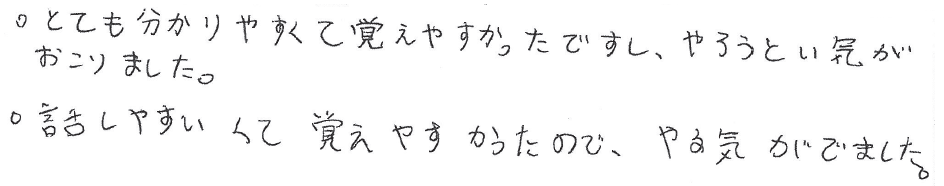 ○とても分かりやすくて覚えやすかったですし、やろうとい気が
おこりました。
○話しやすいくて覚えやすかったので、やる気がでました。